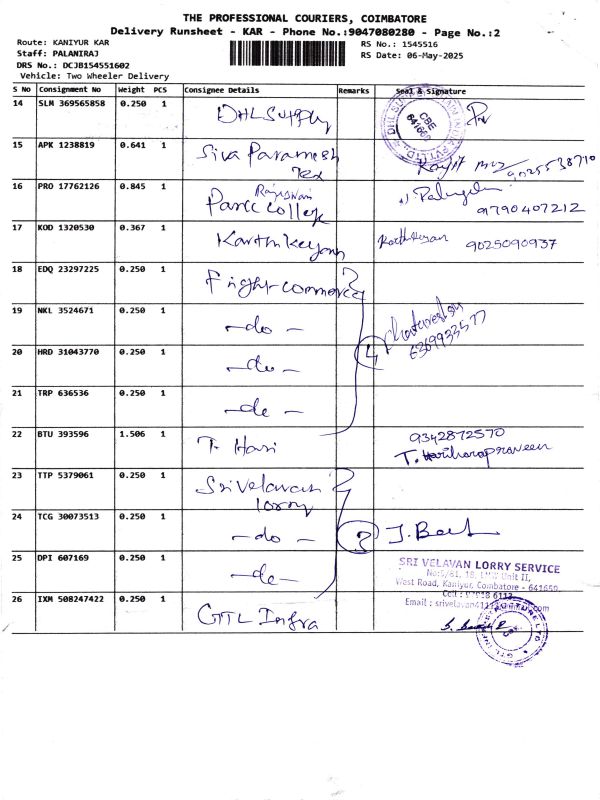 THE PROFESSIONAL COURIERS, COIMBATORE
Delivery Runsheet - KAR - Phone No.:9047080280 - Page No.:2
Route: KANIYUR KAR
RS No.: 1545516
Staff: PALANIRAJ
RS Date: 06-May-2025
DRS No.: DCJB154551602
Vehicle: Two Wheeler Delivery
S No Consignment No Weight PCS Consignee Details Remarks Seal & Signature
14 SLM 369565858 0.250 1 DHL Supply
CBE
15 APK 1238819 0.641 1 Siva Paramesh
Tex
9025538710
16 PRO 17762126 0.845 1 Rajeswari
Parcc college
9790407212
17 KOD 1320530 0.367 1 Karthikeyan Karthikeyan 9025090937
18 EDQ 23297225 0.250 1 Fright-commerce
19 NKL 3524671 0.250 1 -do-
6369933577
20 HRD 31043770 0.250 1 -do- 4
21 TRP 636536 0.250 1 -do-
22 BTU 393596 1.506 1 T. Hari 9342872570
T. Hariharapraveen
23 TTP 5379061 0.250 1 Sri Velavan
lorry
24 TCG 30073513 0.250 1 -do- 3
25 DPI 607169 0.250 1 -do-
SRI VELAVAN LORRY SERVICE
West Road, Kaniyur, Coimbatore - 641659.
26 IXM 508247422 0.250 1 GTL Infra